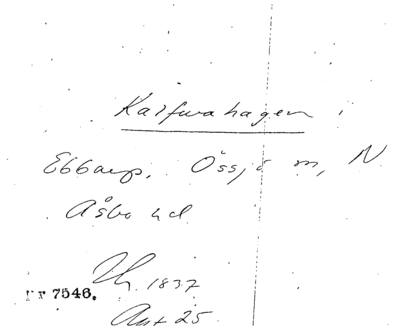 Kalfwahagen i
Ebbarp, Össjö sn, N
Åsbo hd
1837
Nr 7546.
Akt 25